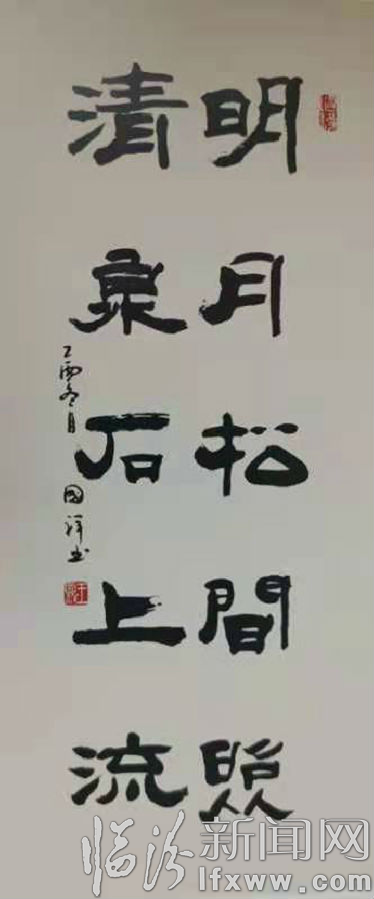 明月松間照
清泉石上流
丁酉冬月 国祥书
临汾新闻网
lfxww.com